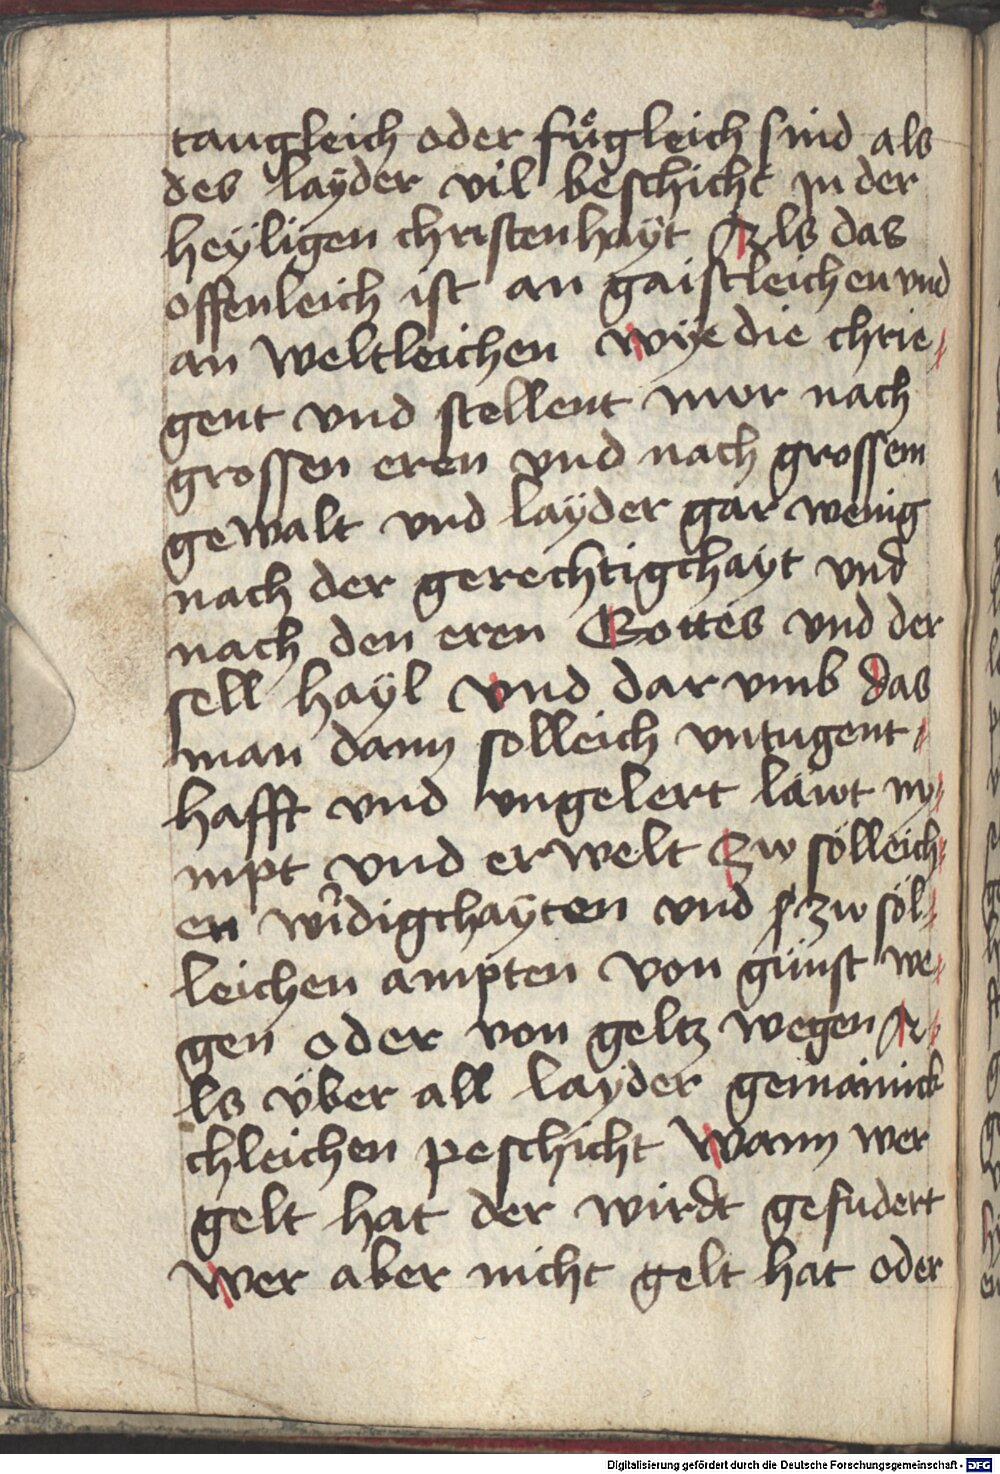 taugleich oder fuͤgleich sind als
des layder vil beschicht jn der
heyligen christenhayt Als das
offenleich ist an gaistleichen vnd
an weltleichen wye die chrie⸗
gent vnd stellent mer nach
grossen eren vnd nach grossem
gewalt vnd layder gar wenig
nach der gerechtigchayt vnd
nach den eren Gottes vnd der
sell hayl vnd dar vmb das
man dann solleich vntugent⸗
hafft vnd vngelert läwt ny⸗
mpt vnd erwelt Zw sölleich⸗
en wirdigchayten vnd zw söl⸗
leichen ampten von günst we⸗
gen oder von geltz wegen A⸗
ls über all layder
chleichen peschicht Wann wer
gelt hat der wirdt gefudert
Wer aber nicht gelt hat oder
Digitalisierung gefördert durch die Deutsche Forschungsgemeinschaft - DFG